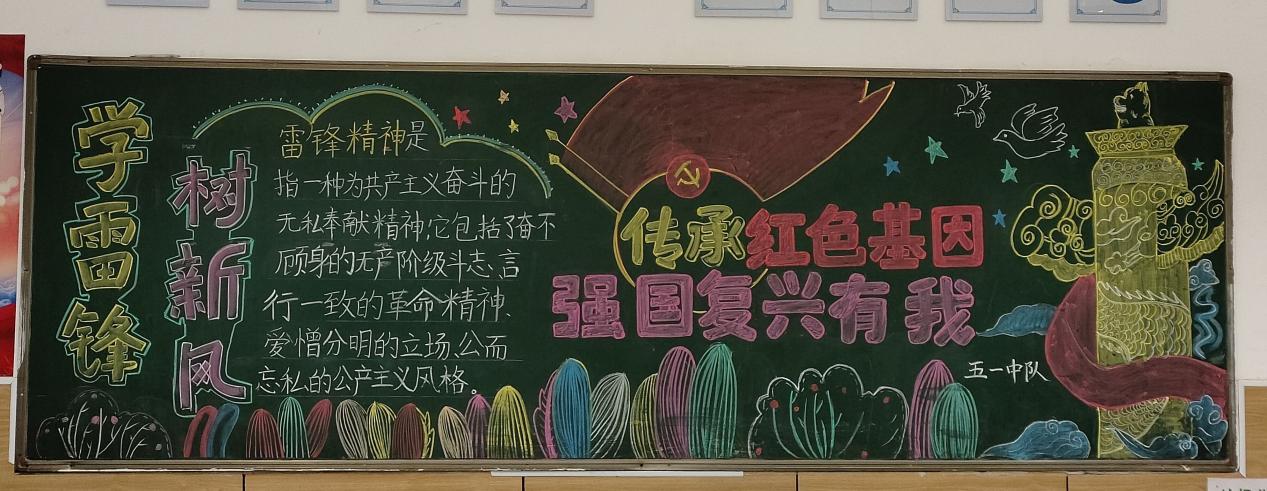 学雷锋
树新风
雷锋精神是
指一种为共产主义奋斗的
无私奉献精神,它包括了奋不
顾身的无产阶级斗志、言
行一致的革命精神、
爱憎分明的立场、公而
忘私的公产主义风格。
传承红色基因
强国复兴有我
五一中队